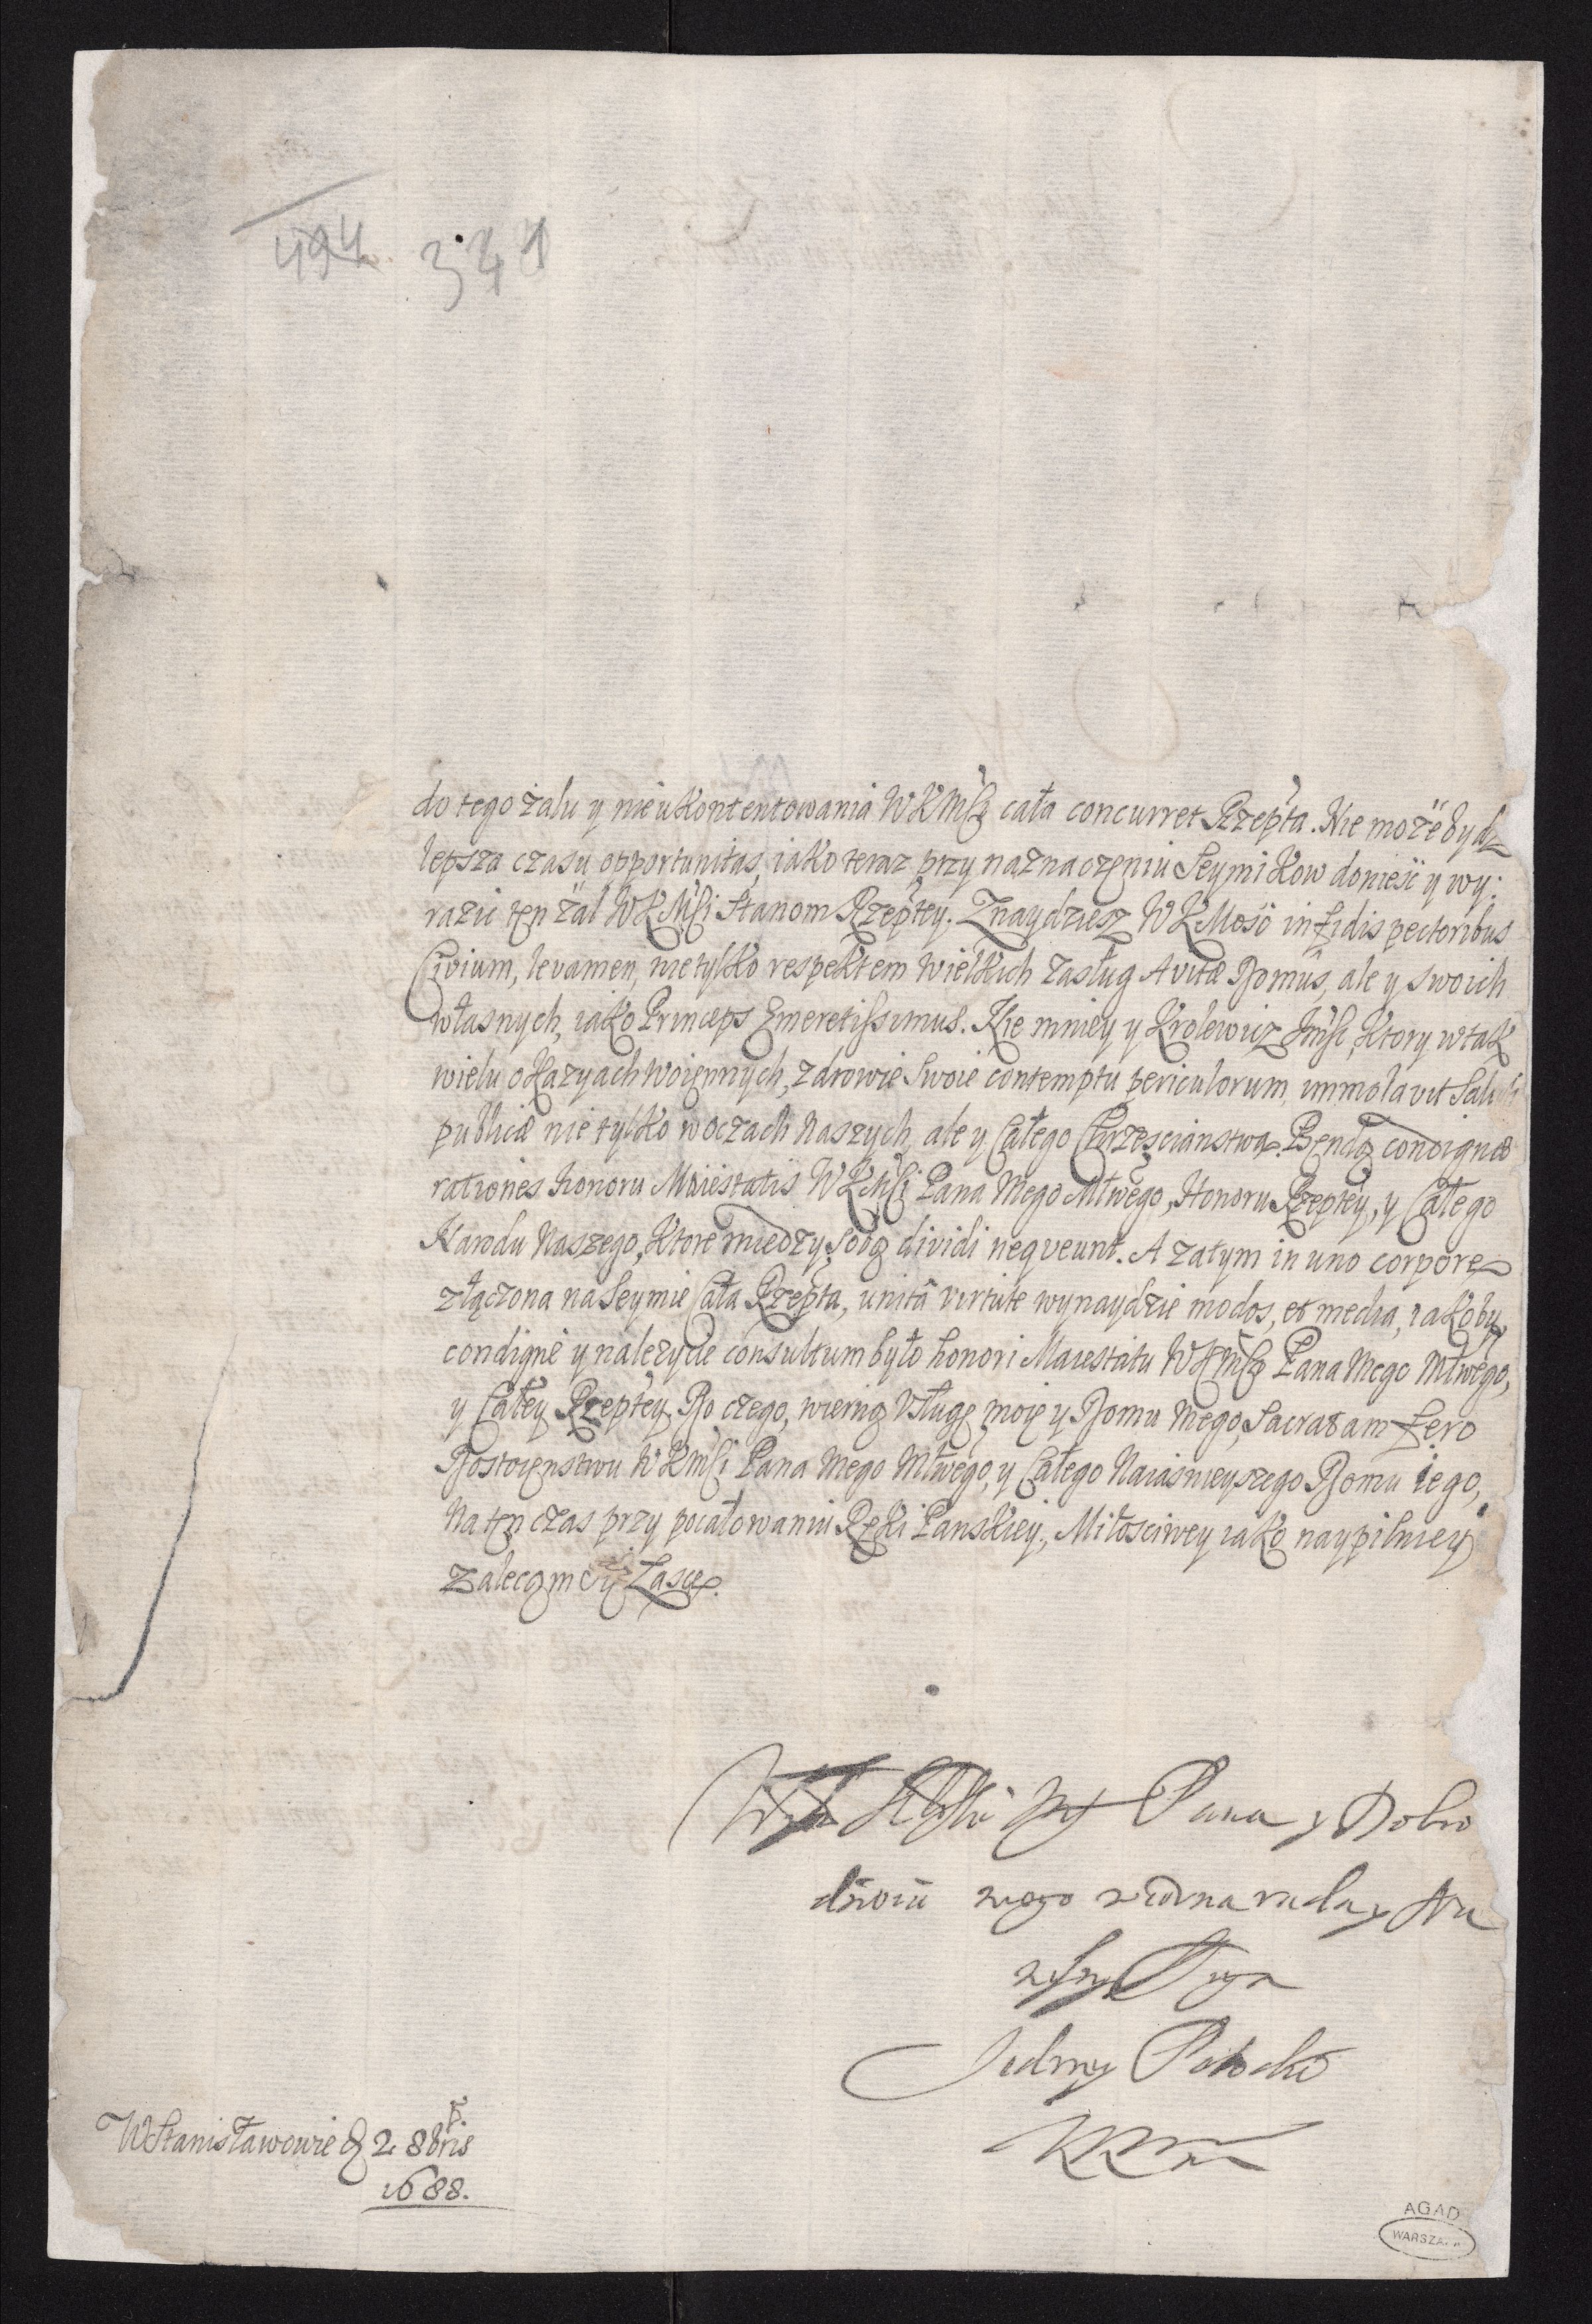 494. 341
do tego żalu y nieukontentowania WKMśći cała concurret Rzepta. Nie może bydz
lepsza czasu opportunitas, iako teraz przy naznaczęniu Seymikow donieść y wy:
razić tęn żal WKMśći Stanom Rzeptey. Znaydziesz WKMość in fidis pectoribus
Civium, levamen, nie tylko respektem wielkich zasług Avitæ Domûs, ale y swoich
własnych, iako Princeps Emeretissimus. Nie mniey y Krolewicz Jmść, ktory w tak
wielu okazyach woięnnych, zdrowie swoie contemptu periculorum, immolavit Saluti
publicæ nie tylko w oczach naszych, ale y Całego Chrzęscianstwa. Bęndą condignæ
rationes honoru Maiestatis WKMśći Pana mego Młwego, Honoru Rzeptey, y Całego
Narodu Naszego, ktore między sobą dividi neqveunt. A zatym in uno corpore
złączona na Seymie Cała Rzepta, unitâ virtute wynaydzie modos, et media, iakoby
condignè y należycie consultum było honori Maiestatu WKMśći Pana mego Młwego,
y Całey Rzeptey. Do czego, wierną Usługę moię y Domu mego, Sacratam fero
Dostoięnstwu WKMśći Pana mego Młwego, y Całego Naiaśnieyszego Domu iego,
na tęn czas przy pocałowaniu Ręki Panskiey, Miłosciwey iako naypilniey
zalecąm się Łasce.
Pana y Dobro
dzieia mego wierna rada y
Sługa
Jędrzey Potocki
WStanisławowie d 2 8bris
1688.
AGAD
WARSZAWA